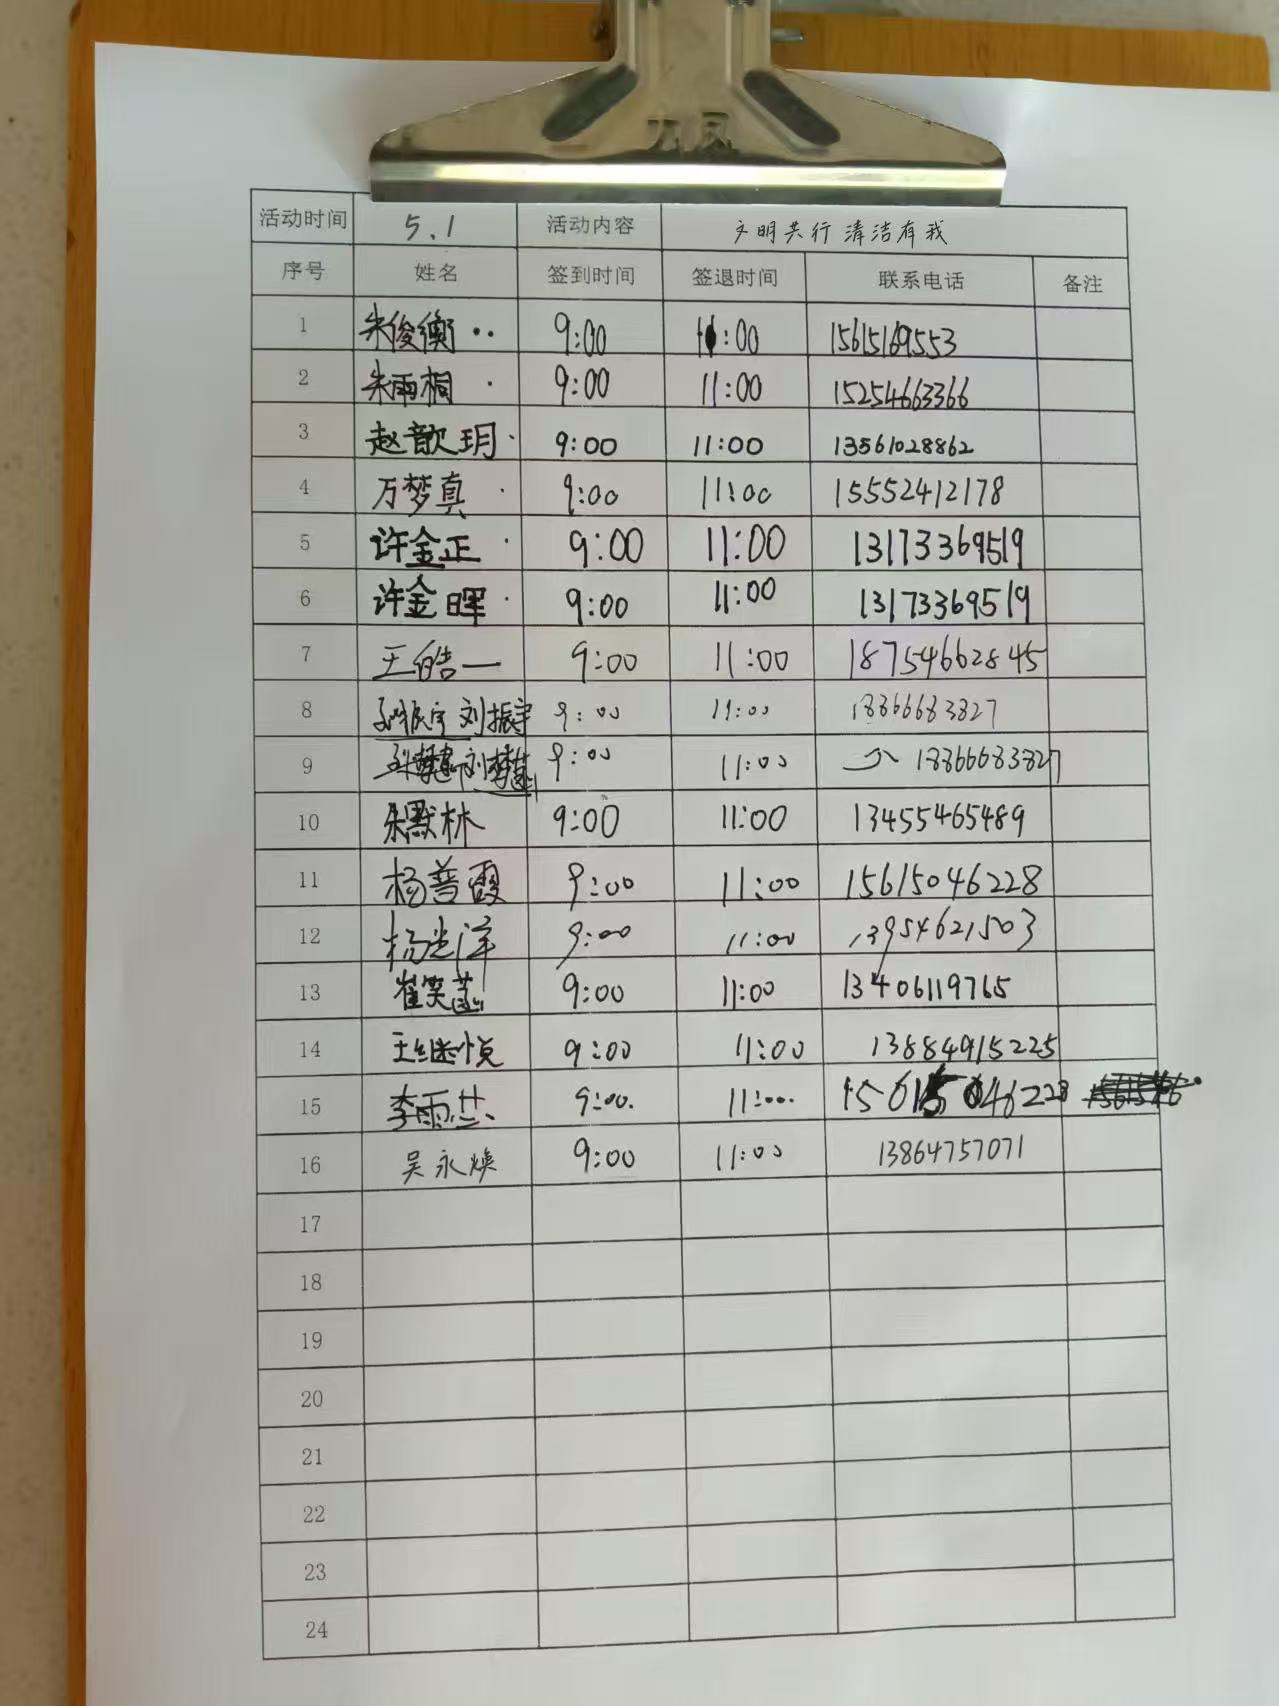 九凤
活动时间 5.1 活动内容 文明共行 清洁有我
序号 姓名 签到时间 签退时间 联系电话 备注
1 朱俊衡 9:00 11:00 15615169553
2 朱雨桐 9:00 11:00 15254663366
3 赵歆玥 9:00 11:00 13561028862
4 万梦真 9:00 11:00 15552412178
5 许金正 9:00 11:00 13173369519
6 许金晖 9:00 11:00 13173369519
7 王皓一 9:00 11:00 18754662845
8 刘振宇 9:00 11:00 18866683827
9 9:00 11:00 18866683827
10 朱默林 9:00 11:00 13455465489
11 杨普霞 9:00 11:00 15615046228
12 杨光洋 9:00 11:00 13954621503
13 崔笑菡 9:00 11:00 13406119765
14 王继悦 9:00 11:00 13884915225
15 李雨 9:00. 11:00. 15615046228
16 吴永焕 9:00 11:00 13864757071
17
18
19
20
21
22
23
24